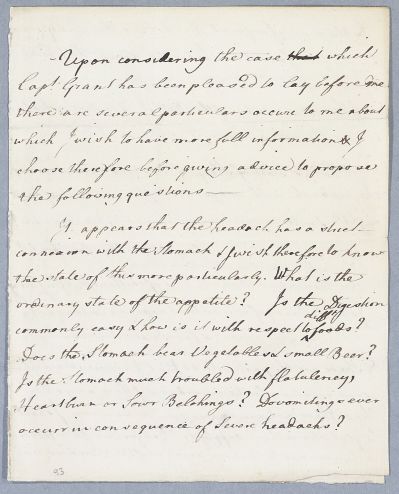 Upon considering the case that which
Capt Grant has been pleased to lay before me
there are several particulars occure to me about
which I wish to have more full information & I
choose therefore before giving advice to propose
the following questions —
It appears that the headach has a strict
connexion with the Stomach & I wish therefore to know
the state of this more particularly. What is the
ordinary state of the appetite? Is the Digestion
commonly easy & how is it with respect to difft foods?
Does the Stomach bear Vegetables & small Beer?
Is the Stomach much troubled with flatulency,
Heartburn or Sowr Belchings? Do vomitings ever
occurr in consequence of Severe headachs?
93